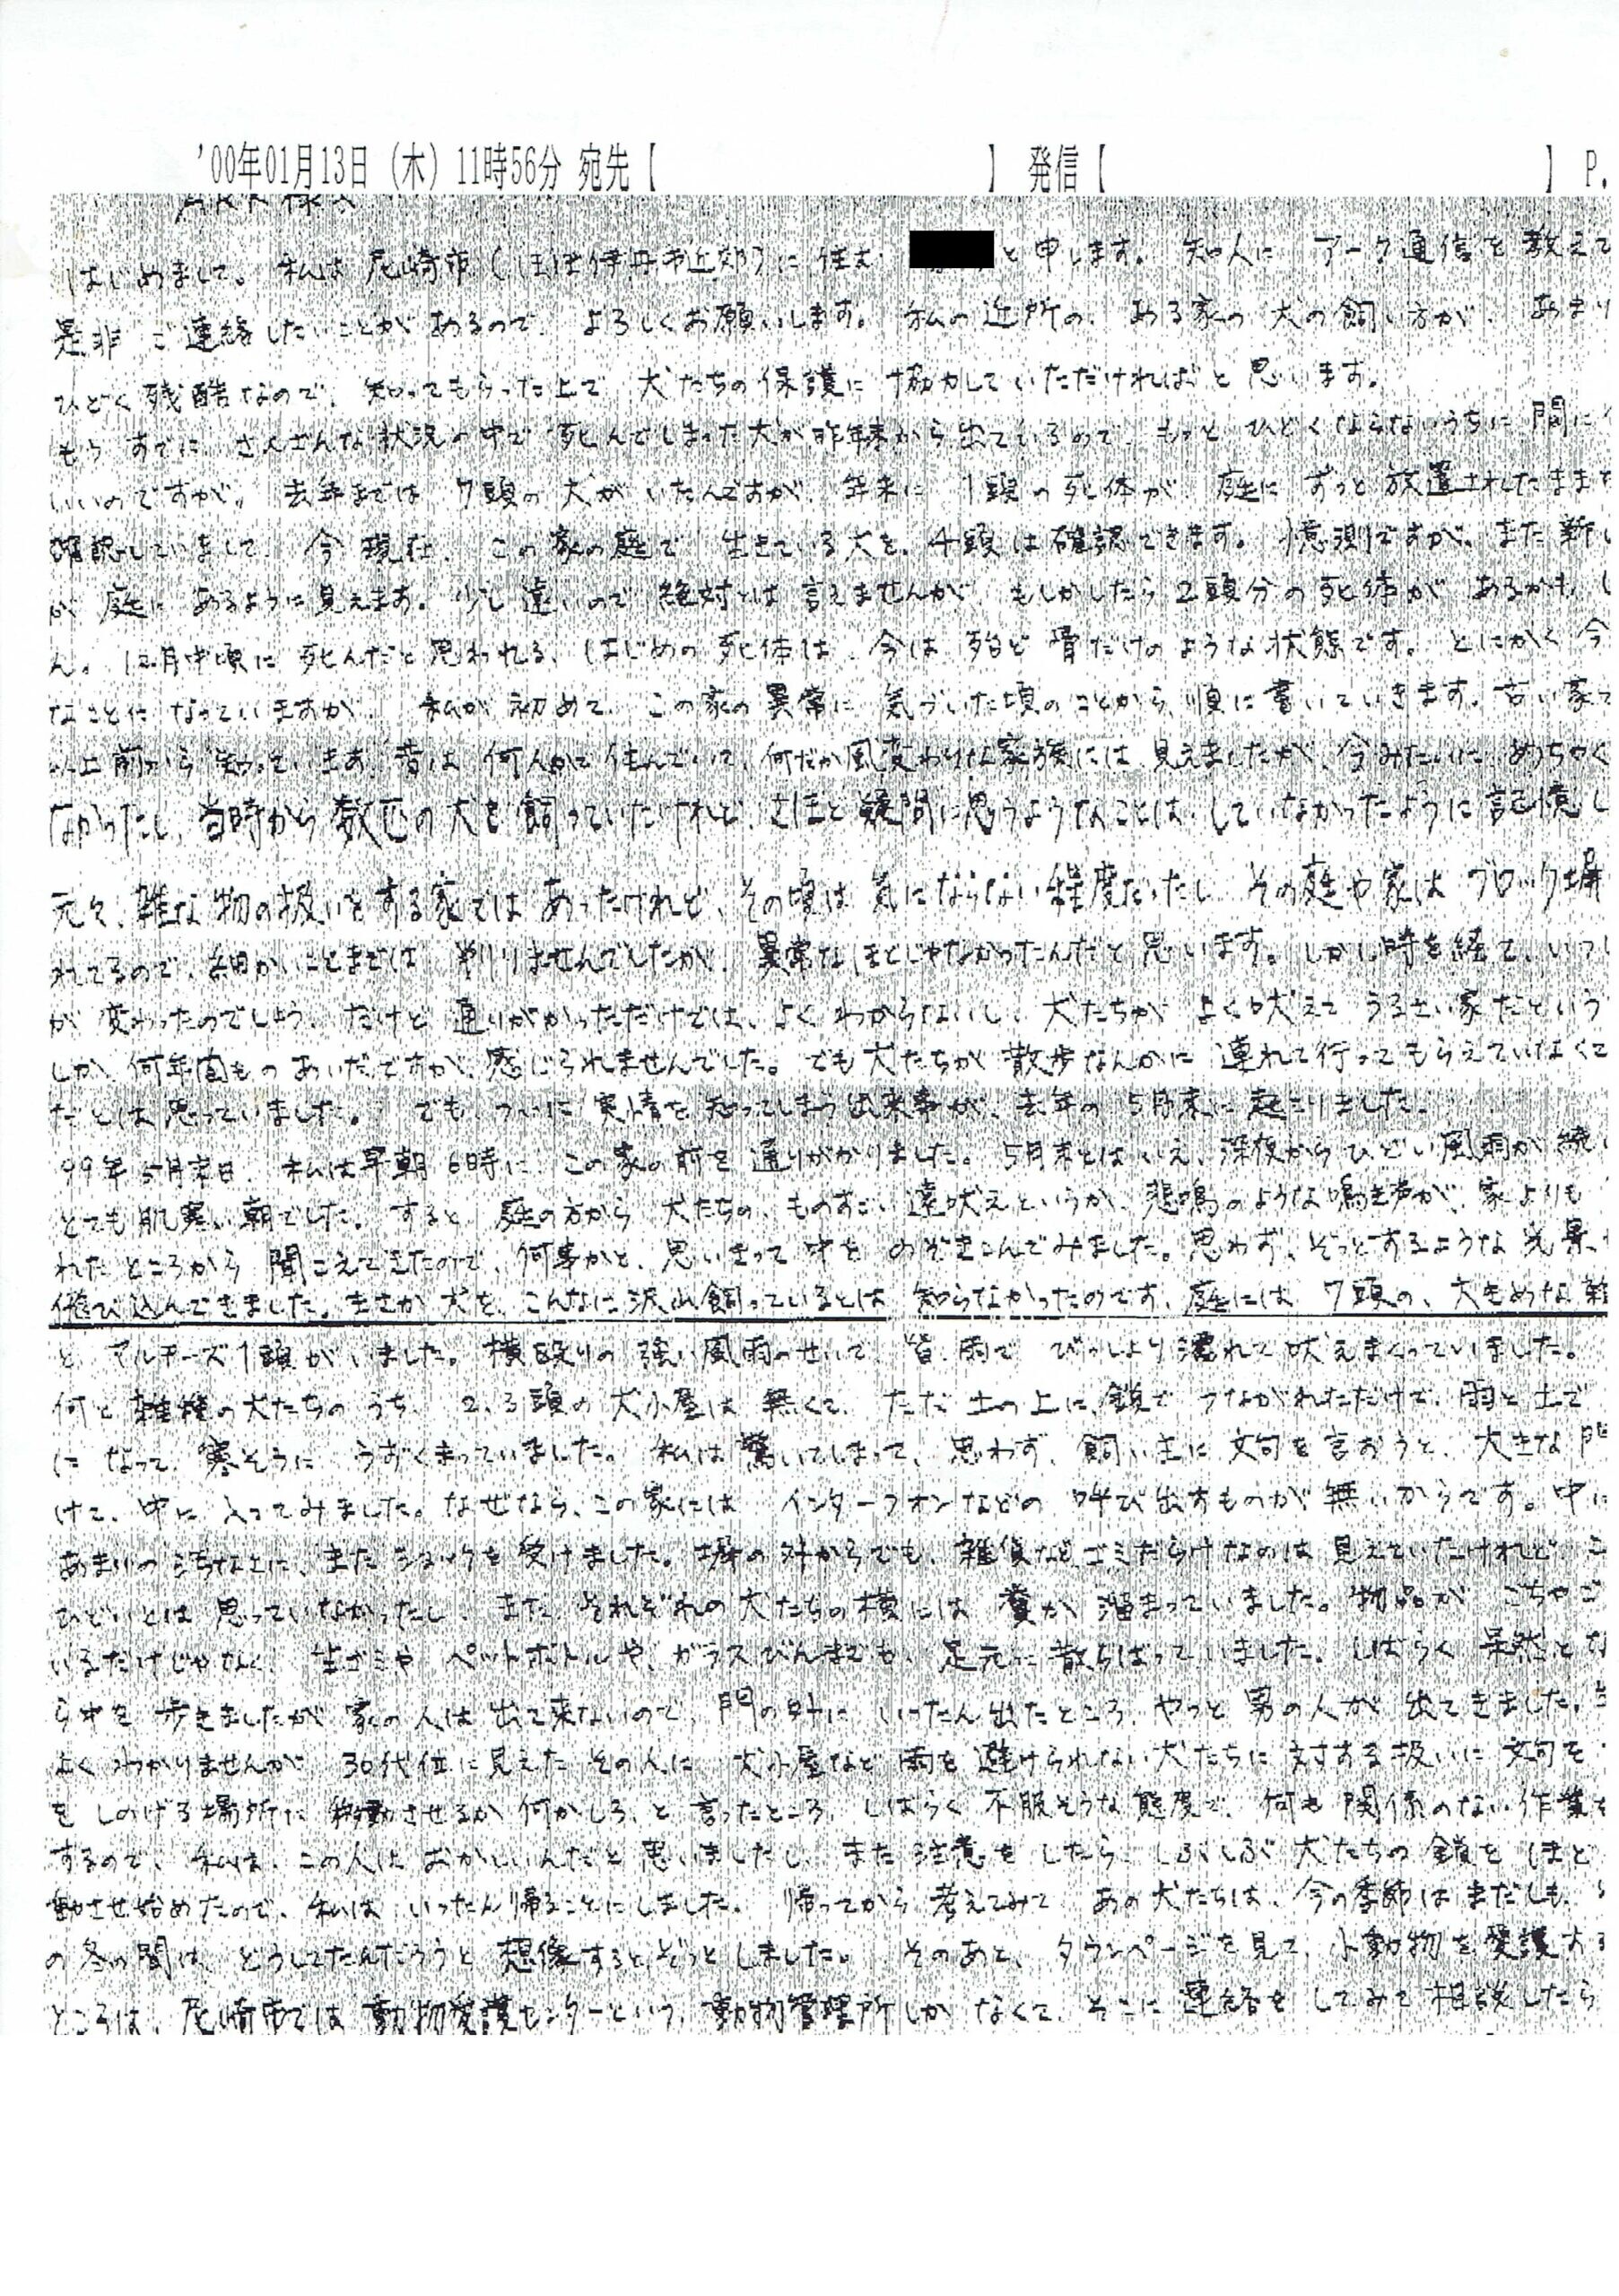 '00年01月13日（木）11時56分 宛先【 】 発信【 】 P.
ARK様へ
はじめまして。私は尼崎市（ほぼ伊丹市近郊）に住む と申します。知人に アーク通信を教えて
是非 ご連絡したいことがあるので、よろしくお願いします。私の近所の、ある家の犬の飼い方が、あまり
ひどく残酷なので、知ってもらった上で 犬たちの保護に協力していただければと思います。
もう すでに、さんざんな状況の中で死んでしまった犬が昨年末から出ているので、もっと ひどくならないうちに 間に
いいのですが。去年までは 7頭の犬が いたんですが、年末に 1頭の死体が 庭に ずっと放置されたまま
確認していまして、今現在、この家の庭で 生きている犬を、4頭は確認できます。憶測ですが、また新
が 庭に あるように見えます。少し遠いので絶対とは言えませんが、もしかしたら 2頭分の死体が あるかも
ん。12月中頃に死んだと思われる、はじめの死体は、今は 殆ど骨だけのような状態です。とにかく今
なことに なっていますが、私が初めて、この家の異常に 気づいた頃のことから、順に書いていきます。古い家で
以上前から知っています。昔は 何人かは住んでいて、何だか風変わりな家族には、見えましたが、今みたいに、めちゃく
なかったし、当時から 数匹の犬を飼っていたけれど、さほど疑問に思うようなことは、していなかったように記憶し
元々、雑な物の扱いをする家ではあったけれど、その頃は気にならない程度だったし、その庭や家は ブロック塀
れてるので、細かいことまでは 判りませんでしたが、異常なほどじゃなかったんだと思います。しかし時を経て、いつ
が変わったのでしょう。だけど 通りがかっただけでは、よくわからないし、犬たちが よく吠えて うるさい家だという
しか、何年間ものあいだですが、感じられませんでした。でも犬たちが散歩なんかに 連れて行ってもらえていなくて
だとは思っていました。でも、ついに実情を知ってしまう出来事が、去年の5月末に起こりました。
99年5月末日、私は早朝6時に、この家の前を通りがかりました。5月末とはいえ、深夜からひどい風雨が続
とても肌寒い朝でした。すると、庭の方から 犬たちの、ものすごい遠吠えというか、悲鳴のような鳴き声が、家よりも
れたところから 聞こえてきたので、何事かと、思いきって中を のぞきこんでみました。思わず、ぞっとするような光景
飛び込んできました。まさか犬を、こんなに沢山飼っているとは 知らなかったのです。庭には 7頭の、大きめな雑
と、マルチーズ1頭がいました。横殴りの強い風雨のせいで、皆、雨で びっしょり濡れて吠えまくっていました。
何と雑種の犬たちのうち、2、3頭の犬小屋は無くて、ただ土の上に、鎖でつながれただけで、雨と土で
になって、寒そうに うずくまっていました。私は驚いてしまって、思わず、飼い主に文句を言おうと、大きな門
けて、中に入ってみました。なぜなら、この家には インターフォンなどの 呼び出すものが無いからです。中に
あまりの汚なさに、またショックを受けました。塀の外からでも、雑貨など、ゴミだらけなのは見えていたけれど、こ
ひどいとは 思っていなかったし、また それぞれの犬たちの横には 糞が溜まっていました。物品が ごちゃご
いるだけじゃなく、生ゴミや ペットボトルや、ガラスびんまでも、足元に散らばっていました。しばらく呆然とな
ら中を 歩きましたが 家の人は出て来ないので、門の外に いったん出たところ、やっと男の人が出てきました。
よくわかりませんが、30代位に見えたその人に、犬小屋など雨を避けられない犬たちに対する扱いに 文句を
をしのげる場所に移動させるか何かしろ、と言ったところ、しばらく不服そうな態度で、何も関係のない作業を
するので、私は、この人はおかしいんだと思いましたし、また注意をしたら、しぶしぶ犬たちの鎖をほど
動させ始めたので、私は いったん帰ることにしました。帰ってから考えてみて、あの犬たちは、今の季節はまだしも、
の冬の間は、どうしてたんだろうと 想像すると、ぞっとしました。そのあと、タウンページを見て、小動物を愛護する
ところは、尼崎市では動物愛護センターという、動物管理所しかなくて、そこに連絡をしてみて相談したら